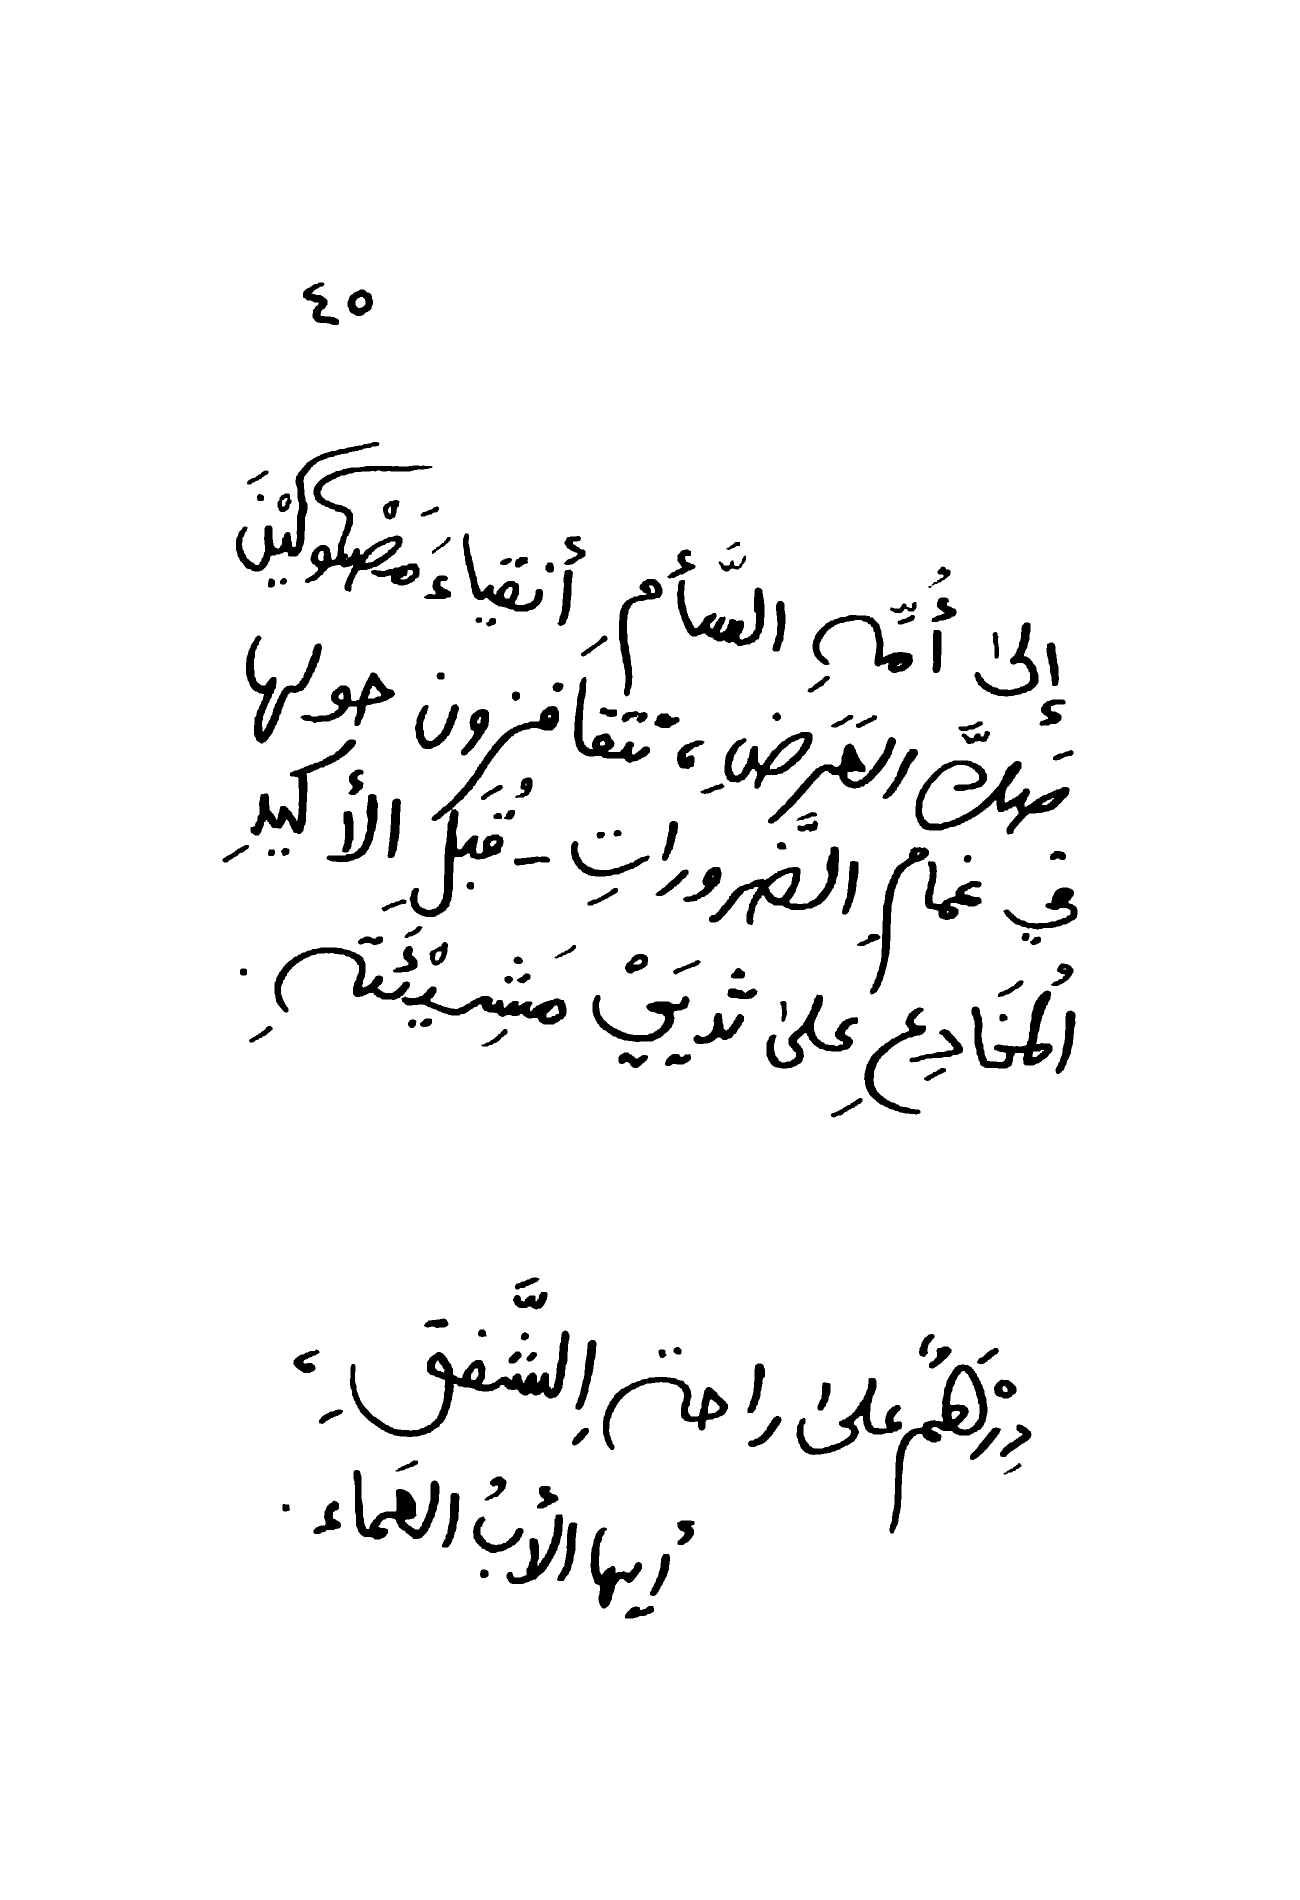 ٤٥
إلىٰ أُمِّهِ السَّأمِ أنقياءَ مَصْكوكيْنَ
صَكَّ العَرَضِ، تتقافزون حولها
في غمامِ الضَّروراتِ - قُبَلِ الأكيدِ
المُخَادِعِ علىٰ ثديَيْ مَشِيْئَتهِ .
دِرْهَمٌ علىٰ راحة الشَّفقِ،
أيها الأبُ العَماء .